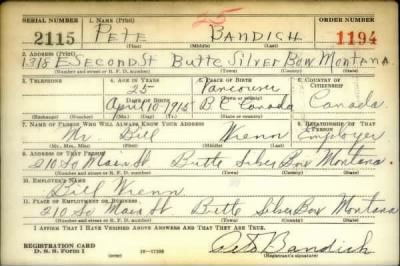 25
SERIAL NUMBER 1. NAME (Print) ORDER NUMBER
2115 PETE BANDICH 1194
(First) (Middle) (Last)
2. ADDRESS (Print)
1318 E SECOND ST Butte Silver Bow Montana
(Number and street or R. F. D. number) (Town) (County) (State)
3. TELEPHONE 4. AGE IN YEARS 5. PLACE OF BIRTH 6. COUNTRY OF CITIZENSHIP
25 Vancouver
DATE OF BIRTH
April 10-1915 B C Canada Canada
(Exchange) (Number) (Mo.) (Day) (Yr.) (Town or county) (State or country)
7. NAME OF PERSON WHO WILL ALWAYS KNOW YOUR ADDRESS 8. RELATIONSHIP OF THAT PERSON
Mr Bill Wrenn Employer
(Mr., Mrs., Miss) (First) (Middle) (Last)
9. ADDRESS OF THAT PERSON
210 So Main St Butte Silver Bow Montana.
(Number and street or R. F. D. number) (Town) (County) (State)
10. EMPLOYER'S NAME
Bill Wrenn
11. PLACE OF EMPLOYMENT OR BUSINESS
210 So Main St Butte Silver Bow Montana
(Number and street or R. F. D. number) (Town) (County) (State)
I AFFIRM THAT I HAVE VERIFIED ABOVE ANSWERS AND THAT THEY ARE TRUE.
REGISTRATION CARD
D. S. S. Form 1 16-17105 Pete Bandich
(Registrant's signature)